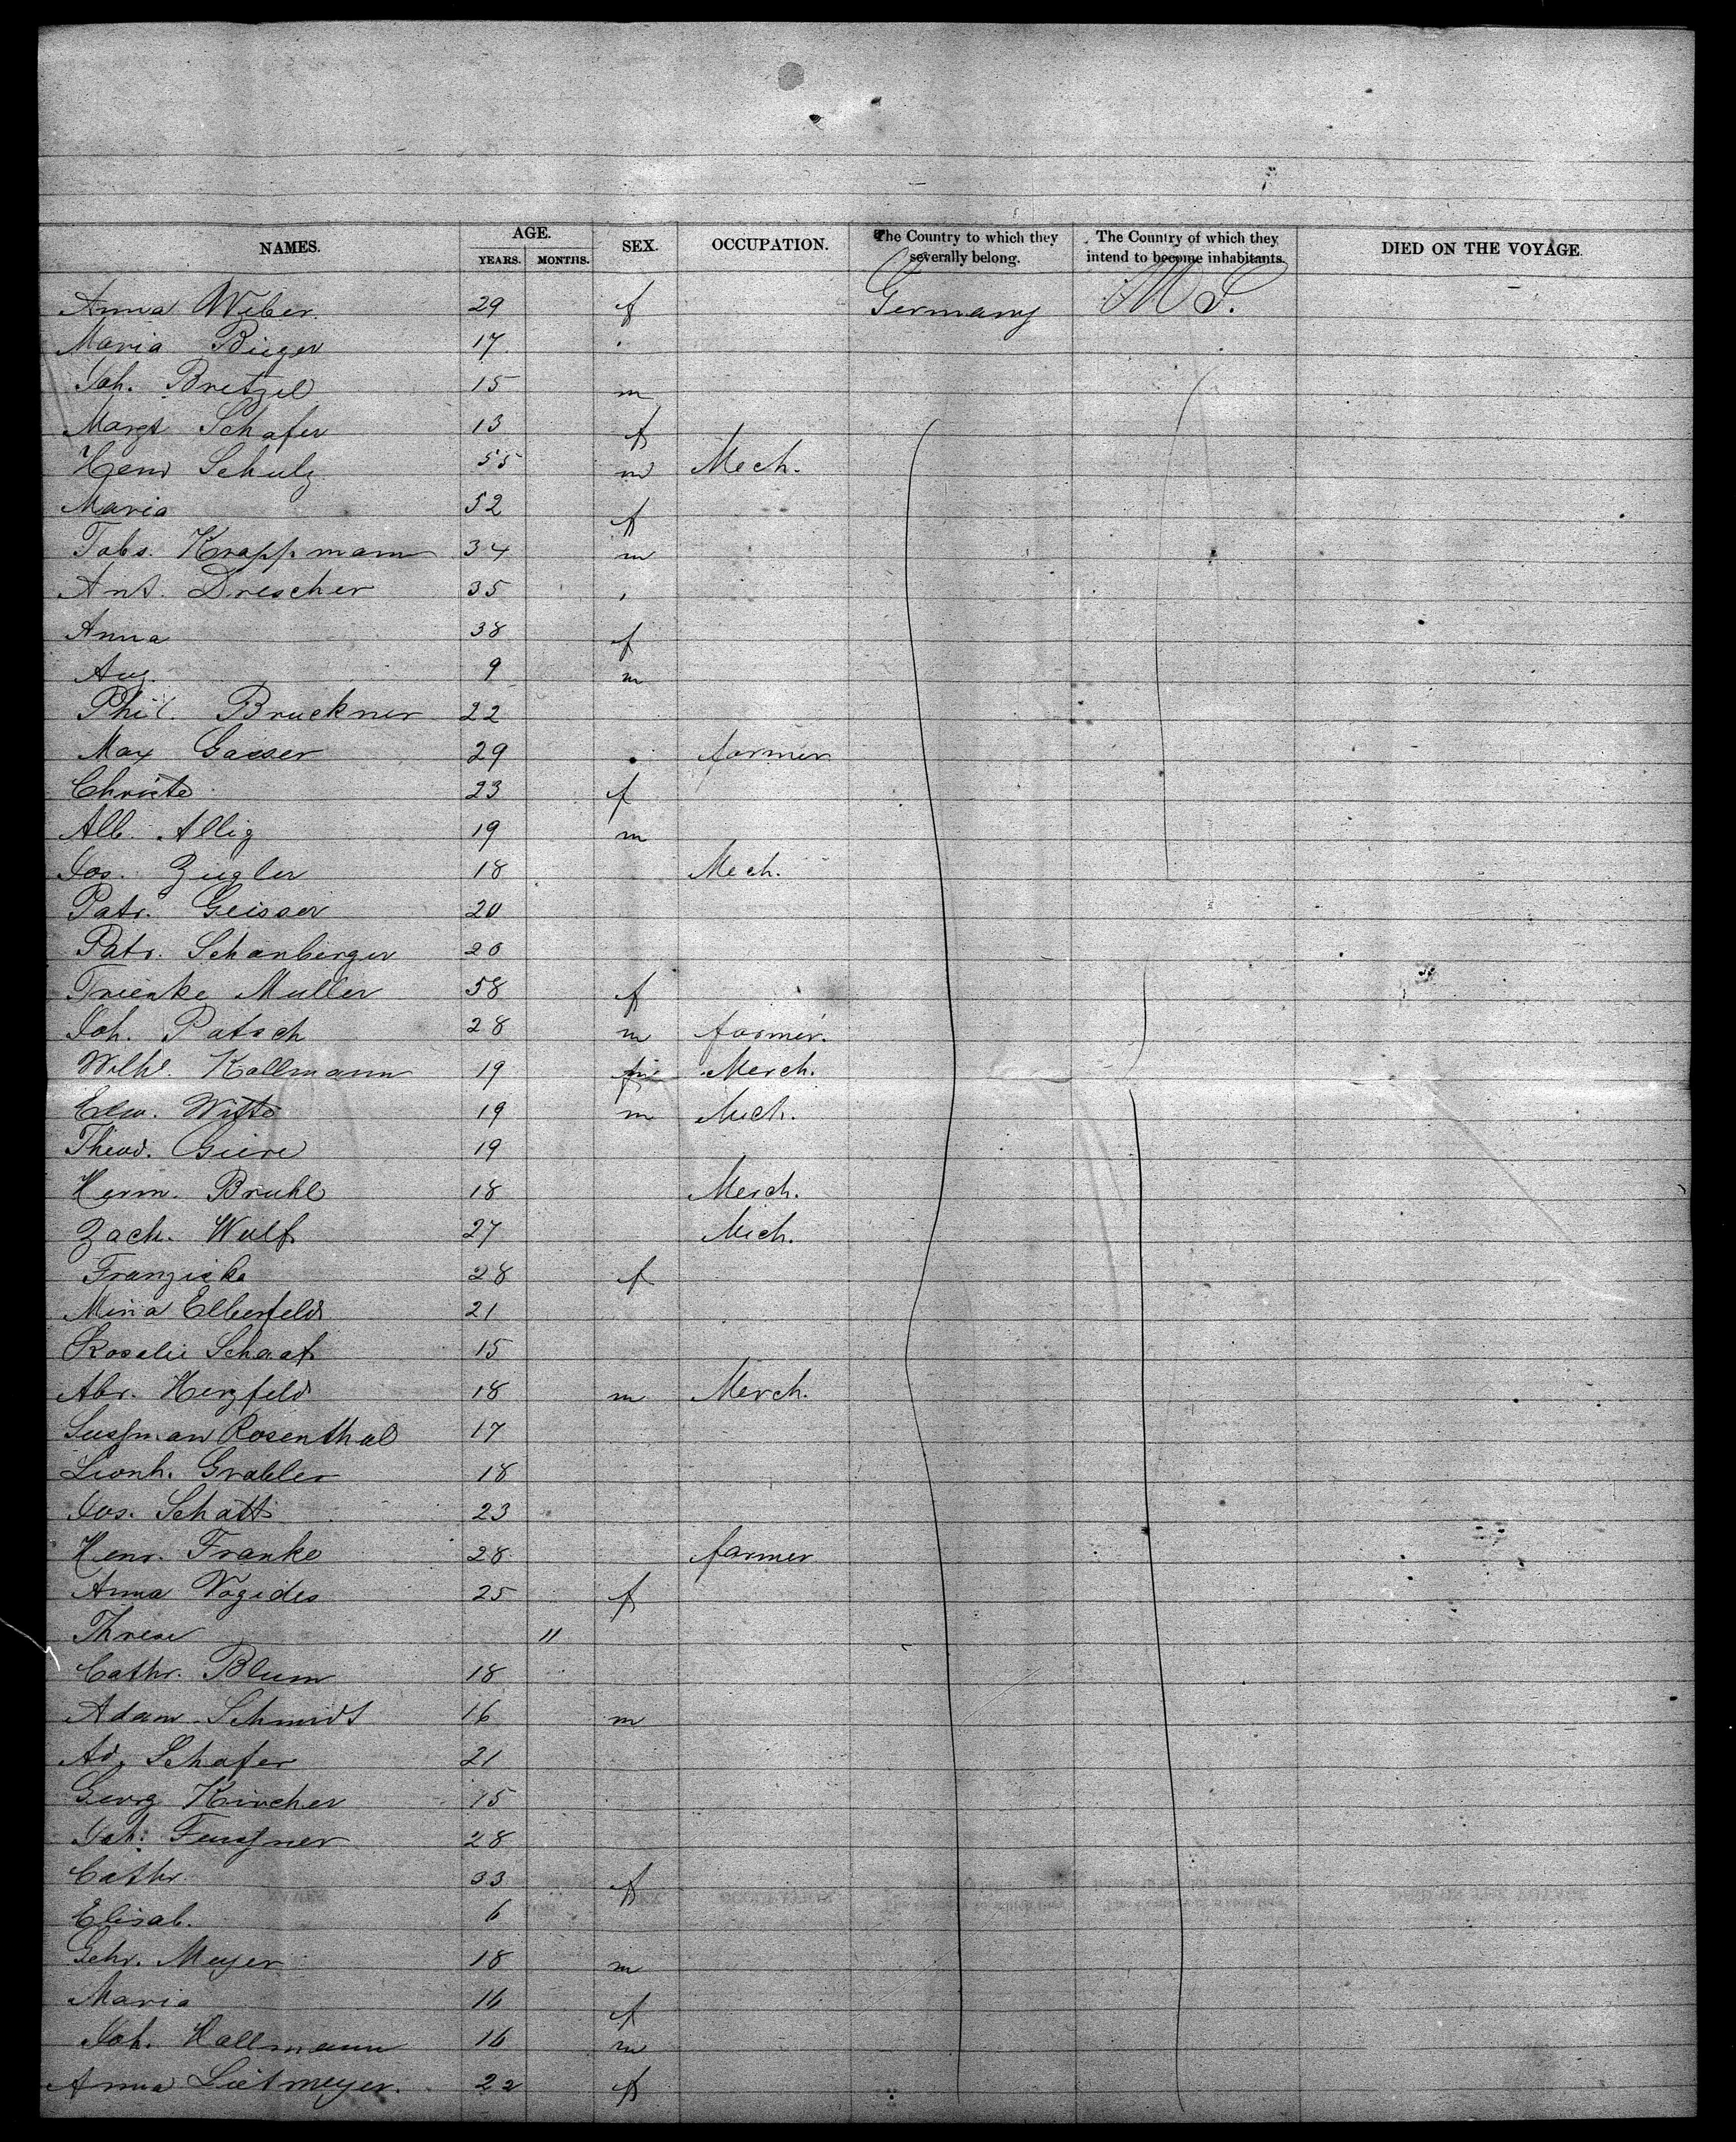 NAMES. AGE. SEX. OCCUPATION. The Country to which they severally belong. The Country of which they intend to become inhabitants. DIED ON THE VOYAGE.
YEARS. MONTHS.
Anna Weber. 29 f Germany U S.
Maria Bieger 17
Joh. Bretzel 15 m
Margt Schafer 13 f
Henr Schulz 55 m Mech.
Maria 52 f
Tobs. Krappmann 34 m
Ant. Drescher 35
Anna 38 f
Aug. 9 m
Phil. Bruckner 22
Max Gasser 29 farmer
Christe 23 f
Alb. Allig 19 m
Jos. Ziegler 18 Mech.
Patr. Geisser 20
Patr. Schanberger 20
Trienke Muller 58 f
Joh. Patsch 28 m farmer.
Wilhl. Kallmann 19 m Merch.
Edw. Witte 19 m Mech.
Theod. Giere 19
Herm. Bruhl 18 Merch.
Zach. Wulf 27 Mech.
Franziska 28 f
Mina Elberfeld 21
Rosalie Schaaf 15
Abr. Herzfeld 18 m Merch.
Sussman Rosenthal 17
Lionh. Grabler 18
Jos. Schatt 23
Henr. Franke 28 farmer
Anna Vogides 25 f
Threse 11
Cathr. Blum 18
Adam Schmidt 16 m
Ad. Schafer 21
Georg Kircher 15
Joh. Feussner 28
Cathr. 33 f
Elisab. 6
Gehr. Meyer 18 m
Maria 16 f
Joh. Hallmann 16 m
Anna Lietmeyer. 22 f